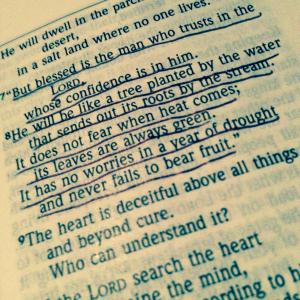 He will dwell in the parc
desert,
in a salt land where no one lives.
7"But blessed is the man who trusts in the
LORD,
whose confidence is in him.
8He will be like a tree planted by the water
that sends out its roots by the stream.
It does not fear when heat comes;
its leaves are always green.
It has no worries in a year of drought
and never fails to bear fruit."
9The heart is deceitful above all things
and beyond cure.
Who can understand it?
the LORD search the heart
ine the mind,
according to hi